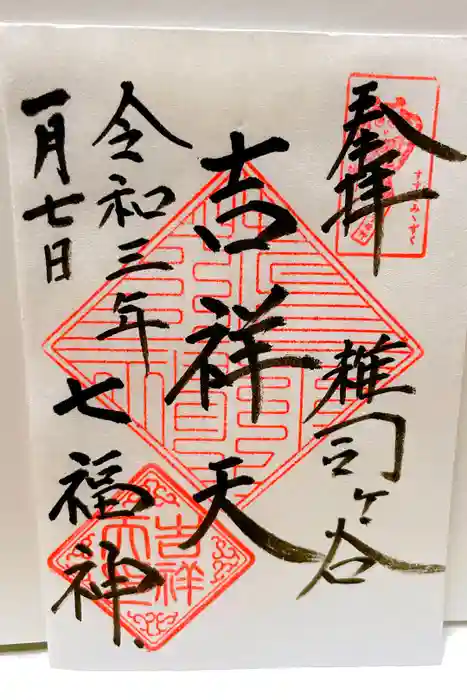 奉拝
すすきみゝずく
雑司ヶ谷
吉祥天
吉祥
天
令和三年
一月七日
七福神